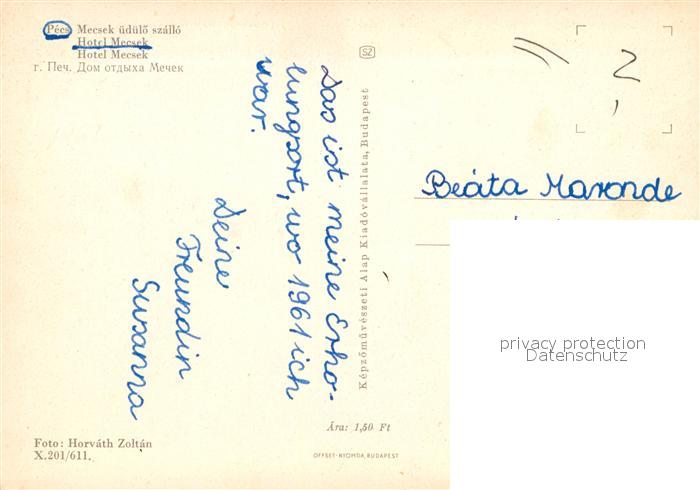 Pécs Mecsek üdülő szálló
Hotel Mecsek
Hotel Mecsek
г. Печ. Дом отдыха Мечек
Das ist meine Erho-
lungsort, wo 1961 ich
war.
Deine
Freundin
Susanna
Foto: Horváth Zoltán
X.201/611.
SZ
Képzőművészeti Alap Kiadóvállalata, Budapest
Ára: 1,50 Ft
OFFSET-NYOMDA, BUDAPEST
2
Beáta Maronde
privacy protection
Datenschutz